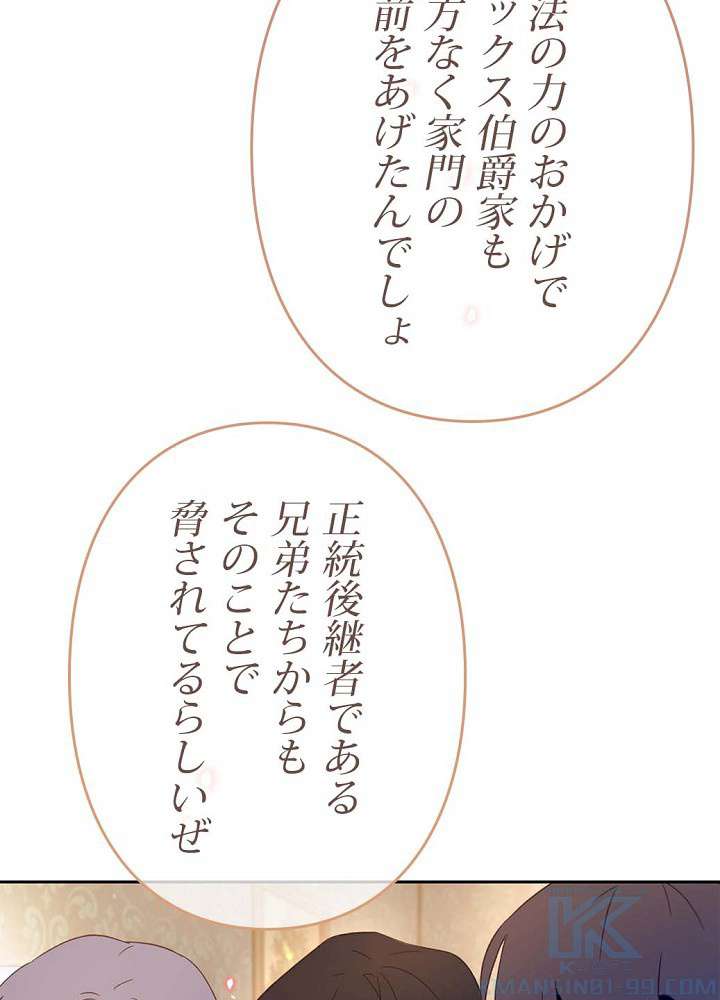 法の力のおかげで
ックス伯爵家も
方なく家門の
前をあげたんでしょ
正統後継者である
兄弟たちからも
そのことで
脅されてるらしいぜ
KMANSIN01-99.COM